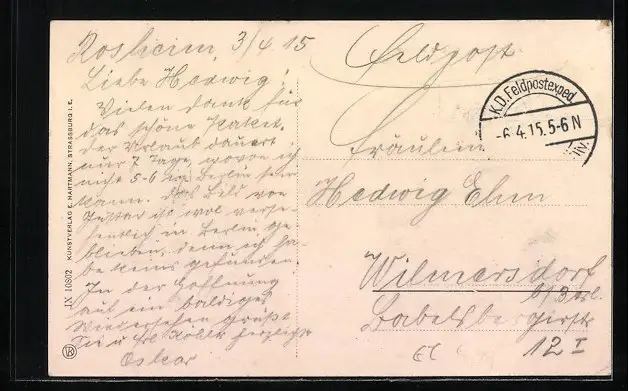 Rosheim, 3/4 15
Liebe Hedwig!
Vielen Dank für
das schöne Paket.
Der Urlaub dauert
nur 7 Tage, wovon ich
nicht 5-6 in Berlin sein
kann. Das Bild von
ist wol verse-
hentlich in Berlin ge
blieben, denn ich ha
be keins gefunden.
In der Hoffnung
auf ein baldiges
Wiedersehen grüßt
herzlichst
Oskar
Feldpost
K.D. Feldpostexped.
-6.4.15.5-6 N
Fräulein
Hedwig Ehm
Wilmersdorf
b/Berl.
Babelsbergerstr
12 I
JX 10802 KUNSTVERLAG E. HARTMANN, STRASSBURG I. E.